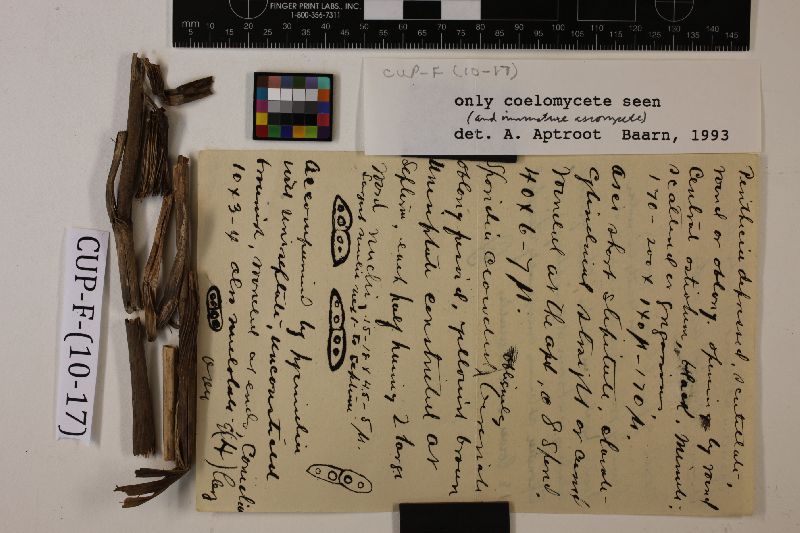 mm
5 10 15 20 25 30 35 40 45 50 55 60 65 70
100 105 110 115 120 125 130 135 140 145
FINGER PRINT LABS., INC.
1-800-356-7311
CUP-F (10-17)
only coelomycete seen
(and immature ascomycete)
det. A. Aptroot Baarn, 1993
CUP-F-(10-17)
Perithecia depressed, scutellate,
round or oblong, opening by round
Central ostiolum, black, minute,
scattered or gregarious,
170-200 x 140µ-170µ.
asci short stipitate, clavate-
cylindrical straight or curved
rounded at the apex, 8 spored,
40 x 6-7µ.
Sporidia crowded obliquely biseriate
oblong fusoid, yellowish brown
uniseptate constricted at
septum, each half having 2 large
round nuclei, 15-18 x 4.5-5µ.
largest nuclei next to septum
Accompanied by pycnidia
with uniseptate, unconstricted
brownish, rounded at ends Conidia
10 x 3-4 also nucleolate